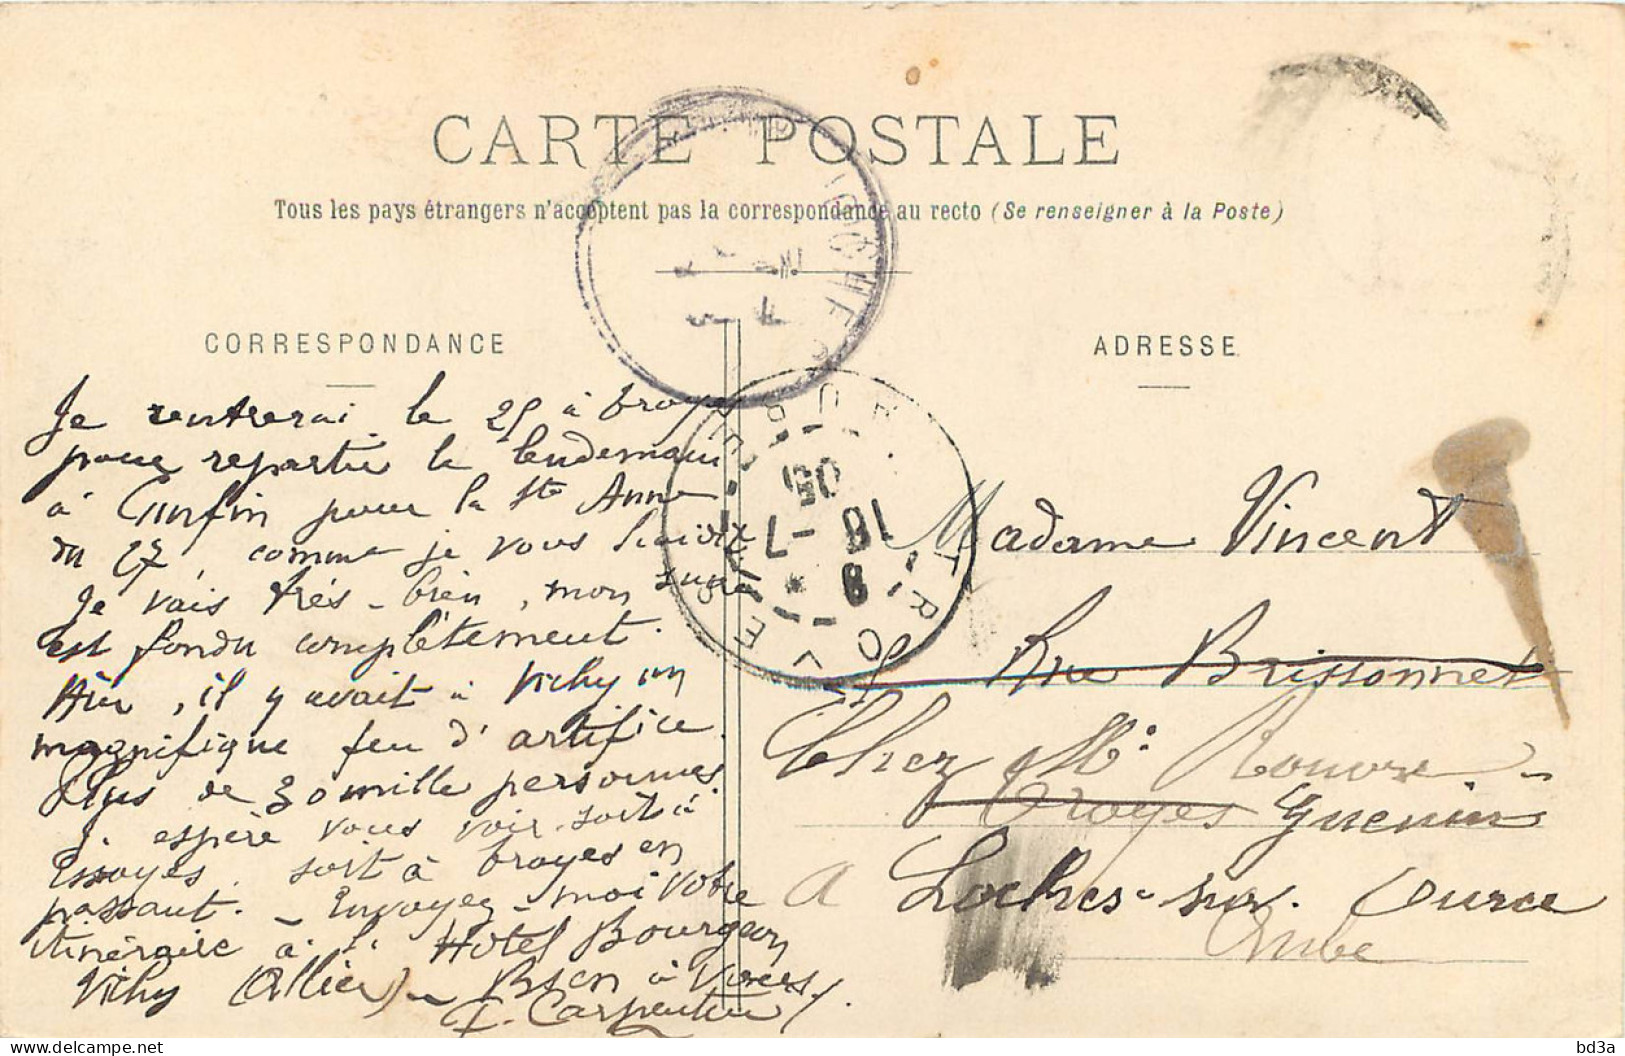 CARTE POSTALE
Tous les pays étrangers n'acceptent pas la correspondance au recto (Se renseigner à la Poste)
CORRESPONDANCE
Je rentrerai le 25 à troyes
pour repartir le lendemain
à Cunfin pour la Ste Anne
du 27, comme je vous
Je vais très-bien, mon sucre
est fondu complètement.
Hier, il y avait à Vichy un
magnifique feu d'artifice.
Plus de 30 mille personnes.
J. espère vous voir soit à
Essoyes, soit à troyes en
passant. - Envoyez-moi votre
itinéraire à l' Hôtel Bourgeon
Vichy (Allier) - Bien à Vous.
F. Carpentier
ADRESSE
Madame Vincent
Rue Brissonnet
Chez Mr.
Troyes Guenin
A Loches-sur-Ource
Aube
LOCHES SUR
TROYES AUBE
8 *
18 -7
05
bd3a